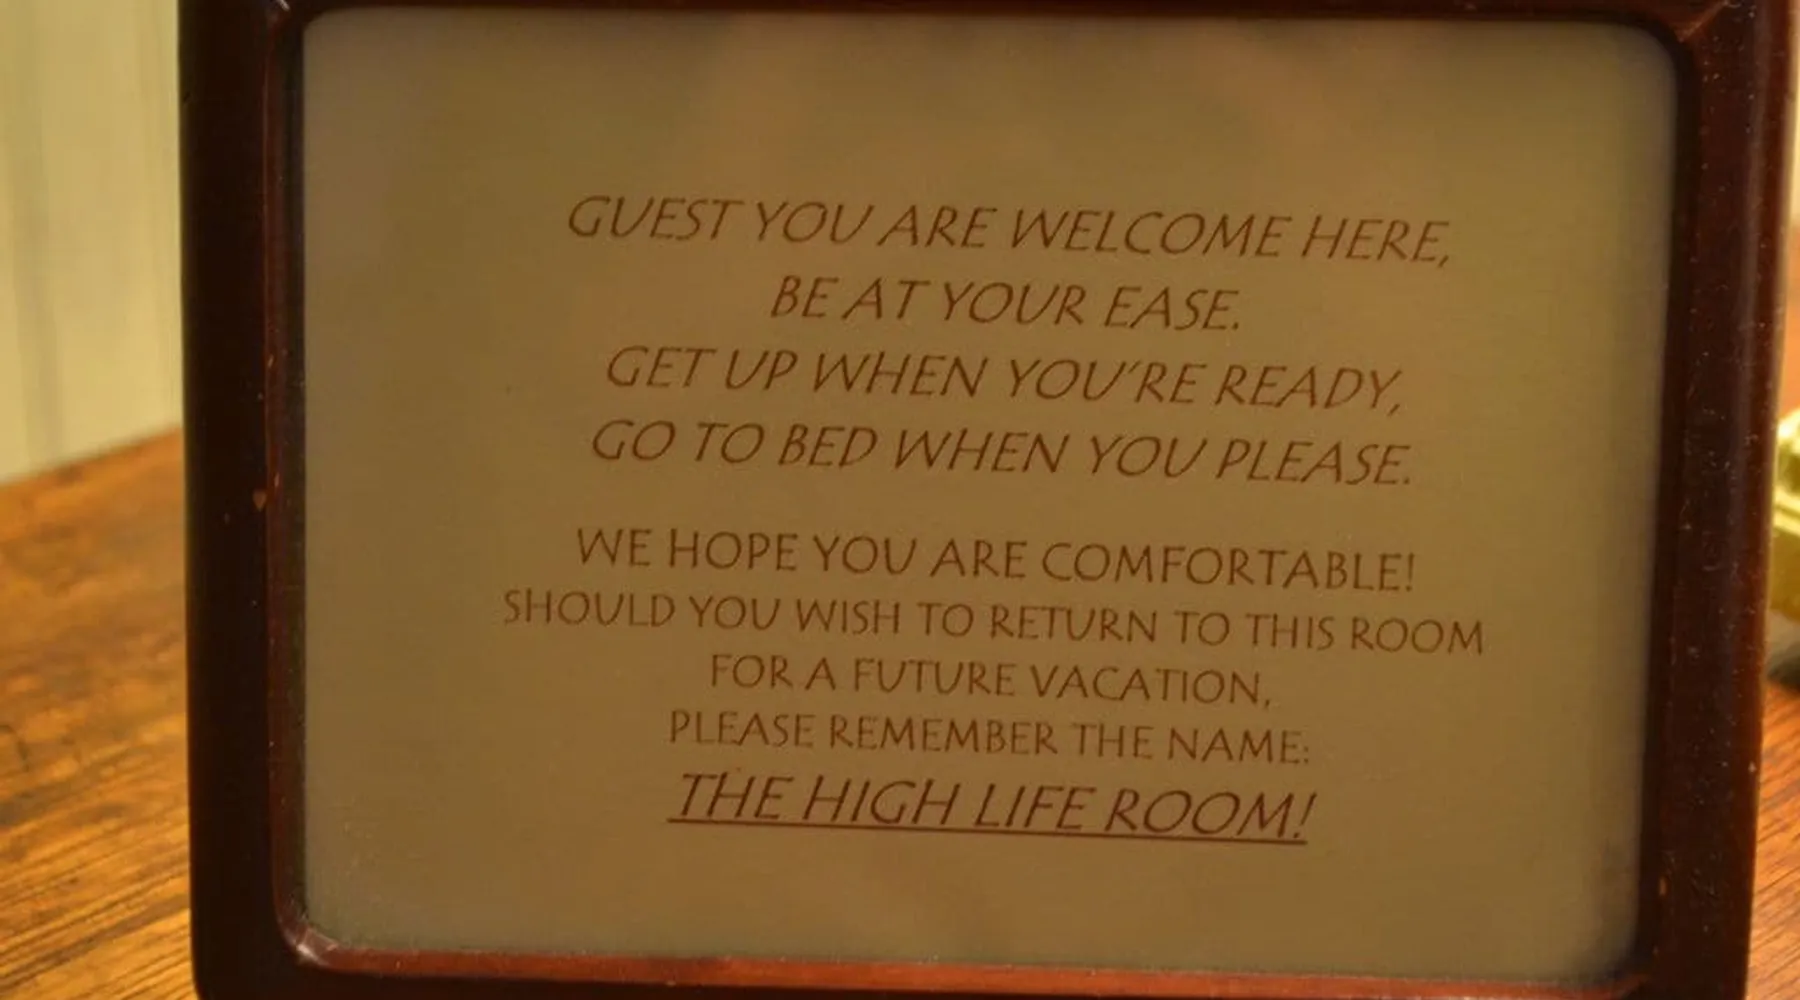 GUEST YOU ARE WELCOME HERE,
BE AT YOUR EASE.
GET UP WHEN YOU'RE READY,
GO TO BED WHEN YOU PLEASE.
WE HOPE YOU ARE COMFORTABLE!
SHOULD YOU WISH TO RETURN TO THIS ROOM
FOR A FUTURE VACATION,
PLEASE REMEMBER THE NAME:
THE HIGH LIFE ROOM!